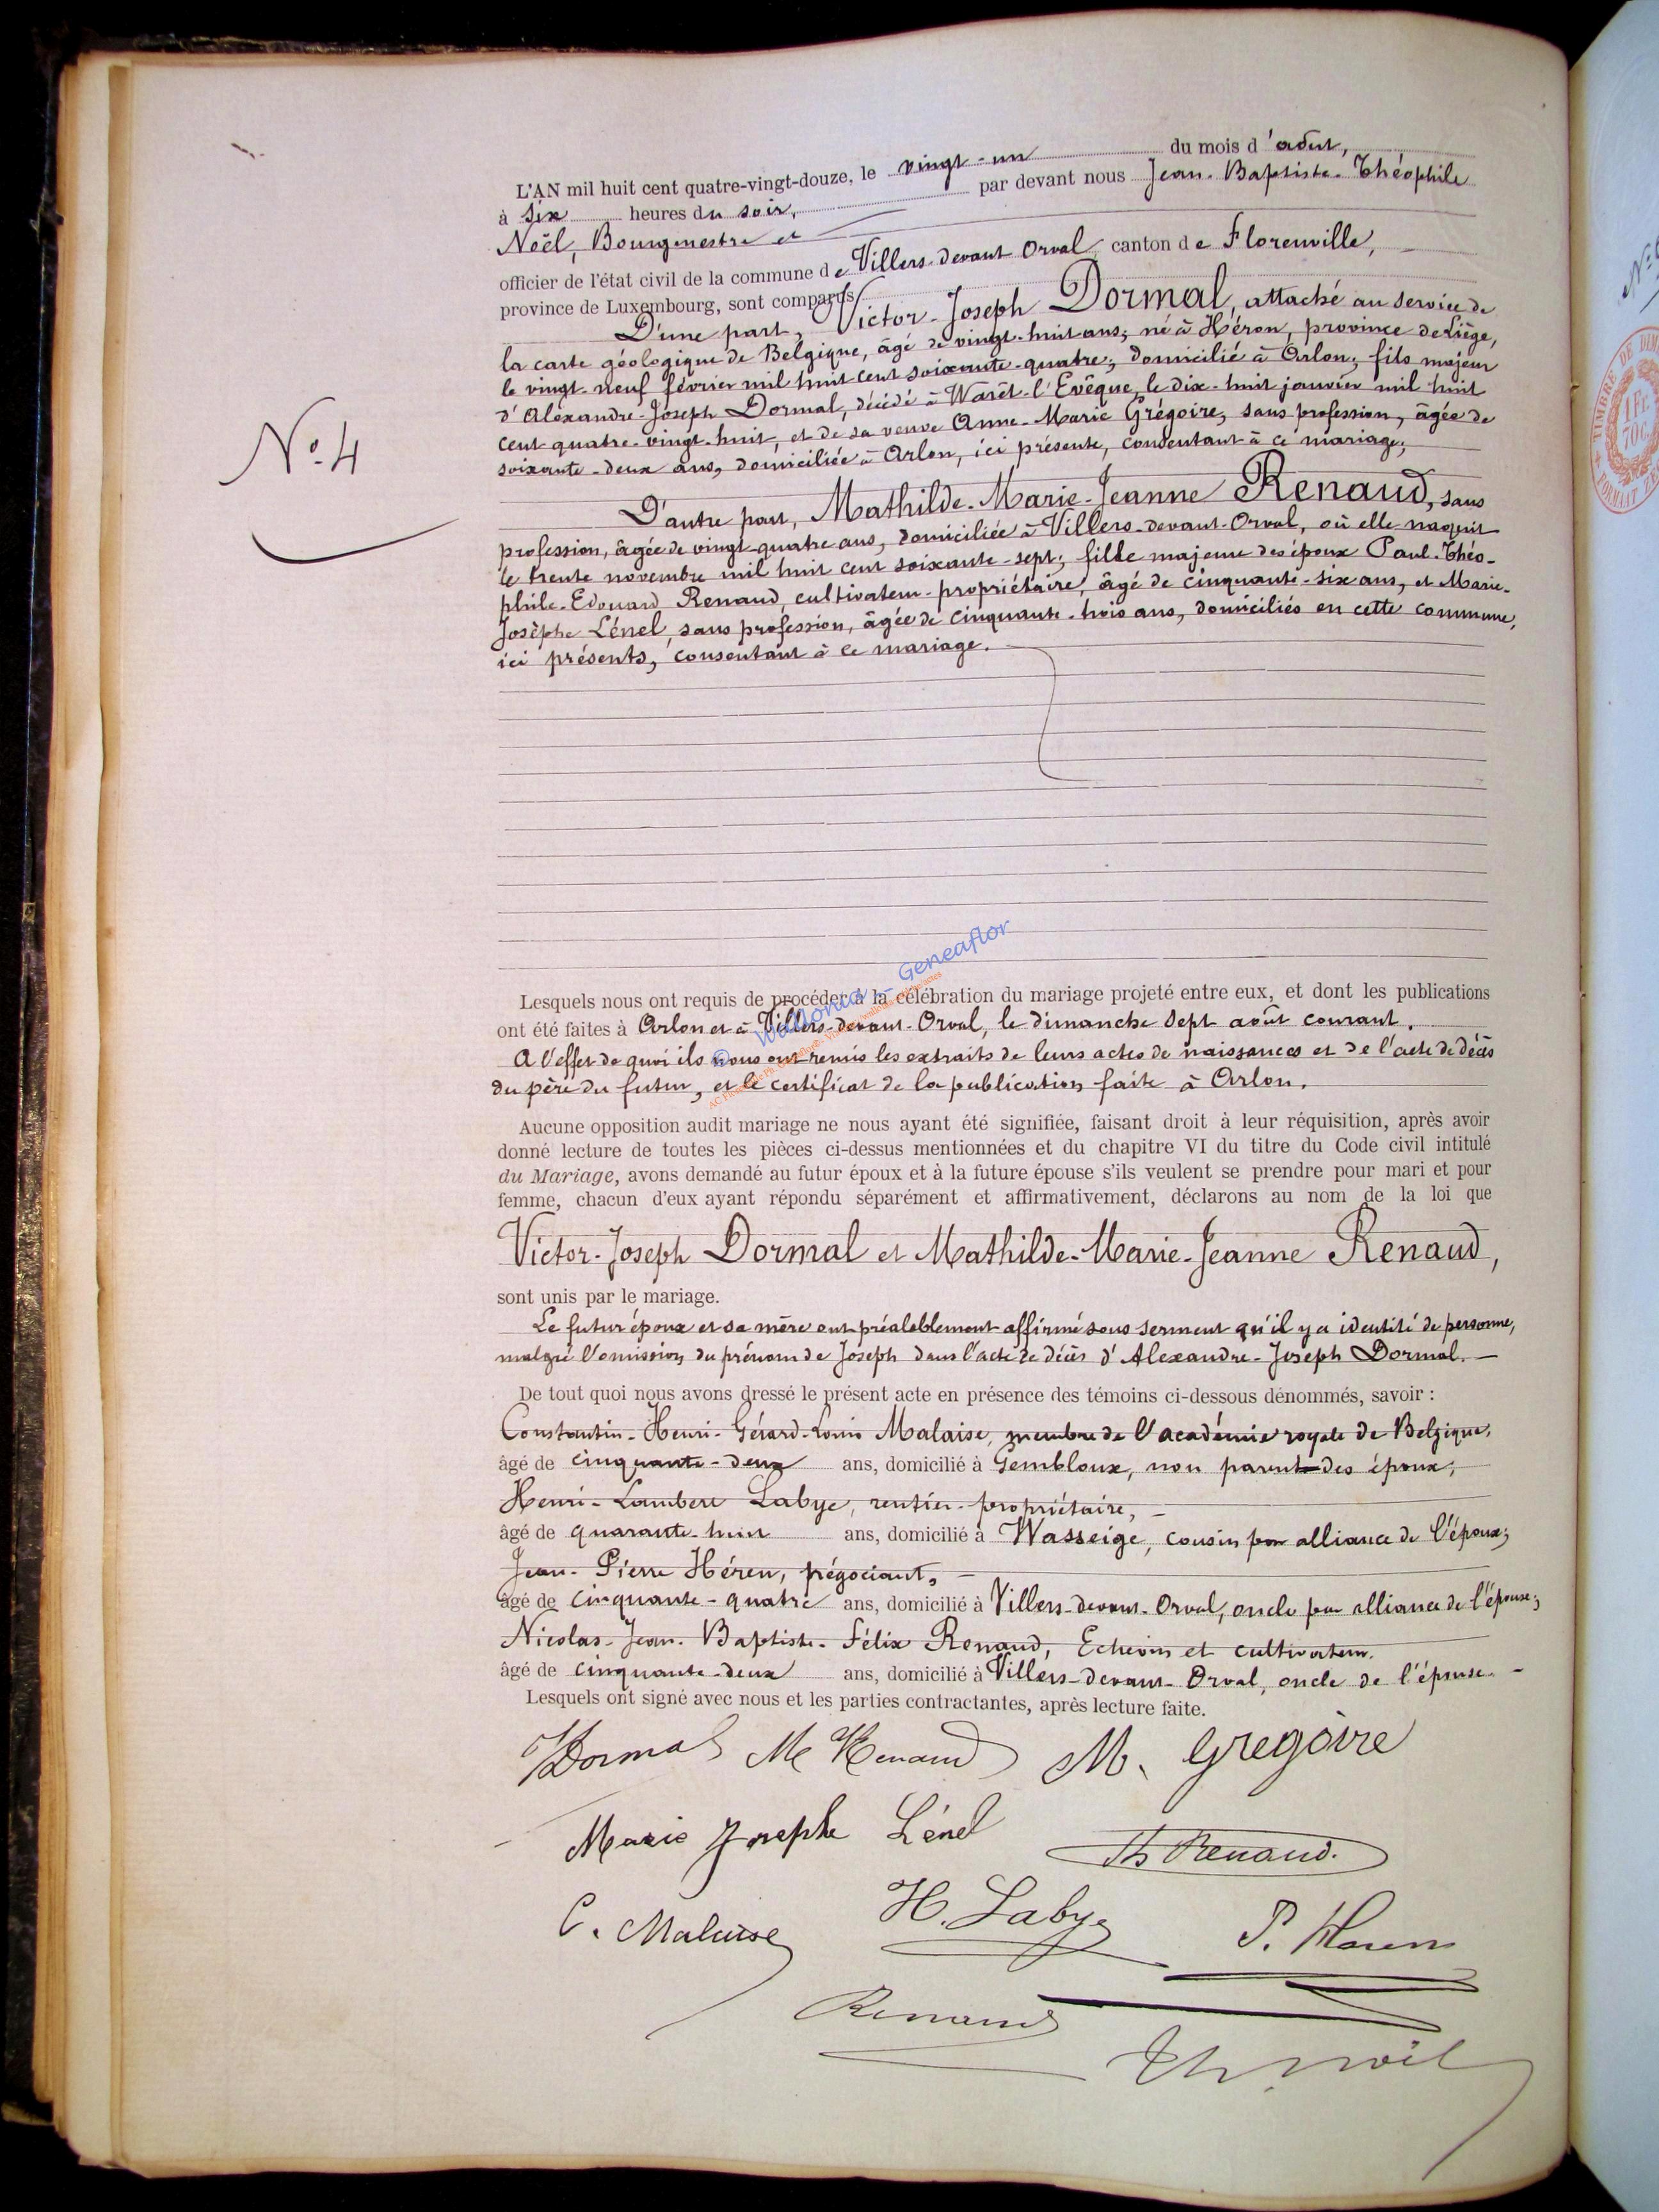 L'AN mil huit cent quatre-vingt-douze, le vingt-un du mois d'août,
à six heures du soir, par devant nous Jean-Baptiste-Théophile
Noël, Bourgmestre et
officier de l'état civil de la commune de Villers-devant-Orval, canton de Florenville,
province de Luxembourg, sont comparus
D'une part, Victor-Joseph Dormal, attaché au service de
la carte géologique de Belgique, âgé de vingt-huit ans, né à Héron, province de Liège,
le vingt-neuf février mil huit cent soixante-quatre; domicilié à Arlon; fils majeur
d'Alexandre-Joseph Dormal, décédé à Warêt-l'Evêque, le dix-huit janvier mil huit
cent quatre-vingt-huit, et de sa veuve Anne-Marie Grégoire, sans profession, âgée de
soixante-deux ans, domiciliée à Arlon, ici présente, consentant à ce mariage;
D'autre part, Mathilde-Marie-Jeanne Renaud, sans
profession, âgée de vingt-quatre ans, domiciliée à Villers-devant-Orval, où elle naquit
le trente novembre mil huit cent soixante-sept; fille majeure des époux Paul-Théo-
phile-Edouard Renaud, cultivateur-propriétaire, âgé de cinquante-six ans, et Marie-
Josèphe Lénel, sans profession, âgée de cinquante-trois ans, domiciliés en cette commune,
ici présents, consentant à ce mariage.
No. 4
Lesquels nous ont requis de procéder à la célébration du mariage projeté entre eux, et dont les publications
ont été faites à Arlon et à Villers-devant-Orval, le dimanche sept août courant.
A l'effet de quoi ils nous ont remis les extraits de leurs actes de naissances et de l'acte de décès
du père du futur, et le certificat de la publication faite à Arlon.
Aucune opposition audit mariage ne nous ayant été signifiée, faisant droit à leur réquisition, après avoir
donné lecture de toutes les pièces ci-dessus mentionnées et du chapitre VI du titre du Code civil intitulé
du Mariage, avons demandé au futur époux et à la future épouse s'ils veulent se prendre pour mari et pour
femme, chacun d'eux ayant répondu séparément et affirmativement, déclarons au nom de la loi que
Victor-Joseph Dormal et Mathilde-Marie-Jeanne Renaud,
sont unis par le mariage.
Le futur époux et sa mère ont préalablement affirmé sous serment qu'il y a identité de personne,
malgré l'omission du prénom de Joseph dans l'acte de décès d'Alexandre-Joseph Dormal.
De tout quoi nous avons dressé le présent acte en présence des témoins ci-dessous dénommés, savoir :
Constantin-Henri-Gérard-Louis Malaise, membre de l'académie royale de Belgique,
âgé de cinquante-deux ans, domicilié à Gembloux, non parent des époux;
Henri-Lambert Labye, rentier-propriétaire,
âgé de quarante-huit ans, domicilié à Wasseige, cousin par alliance de l'époux;
Jean-Pierre Héren, négociant,
âgé de cinquante-quatre ans, domicilié à Villers-devant-Orval, oncle par alliance de l'épouse;
Nicolas-Jean-Baptiste-Félix Renaud, Echevin et cultivateur,
âgé de cinquante-deux ans, domicilié à Villers-devant-Orval, oncle de l'épouse.
Lesquels ont signé avec nous et les parties contractantes, après lecture faite.
VDormal M Renaud M. Gregoire
Marie Josephe Lénel Th Renaud.
C. Malaise H. Labye P. Heren
Renaud
Th. Noël
© Wallonia - Geneaflor
TIMBRE DE DIM
1 Fr.
70 C.